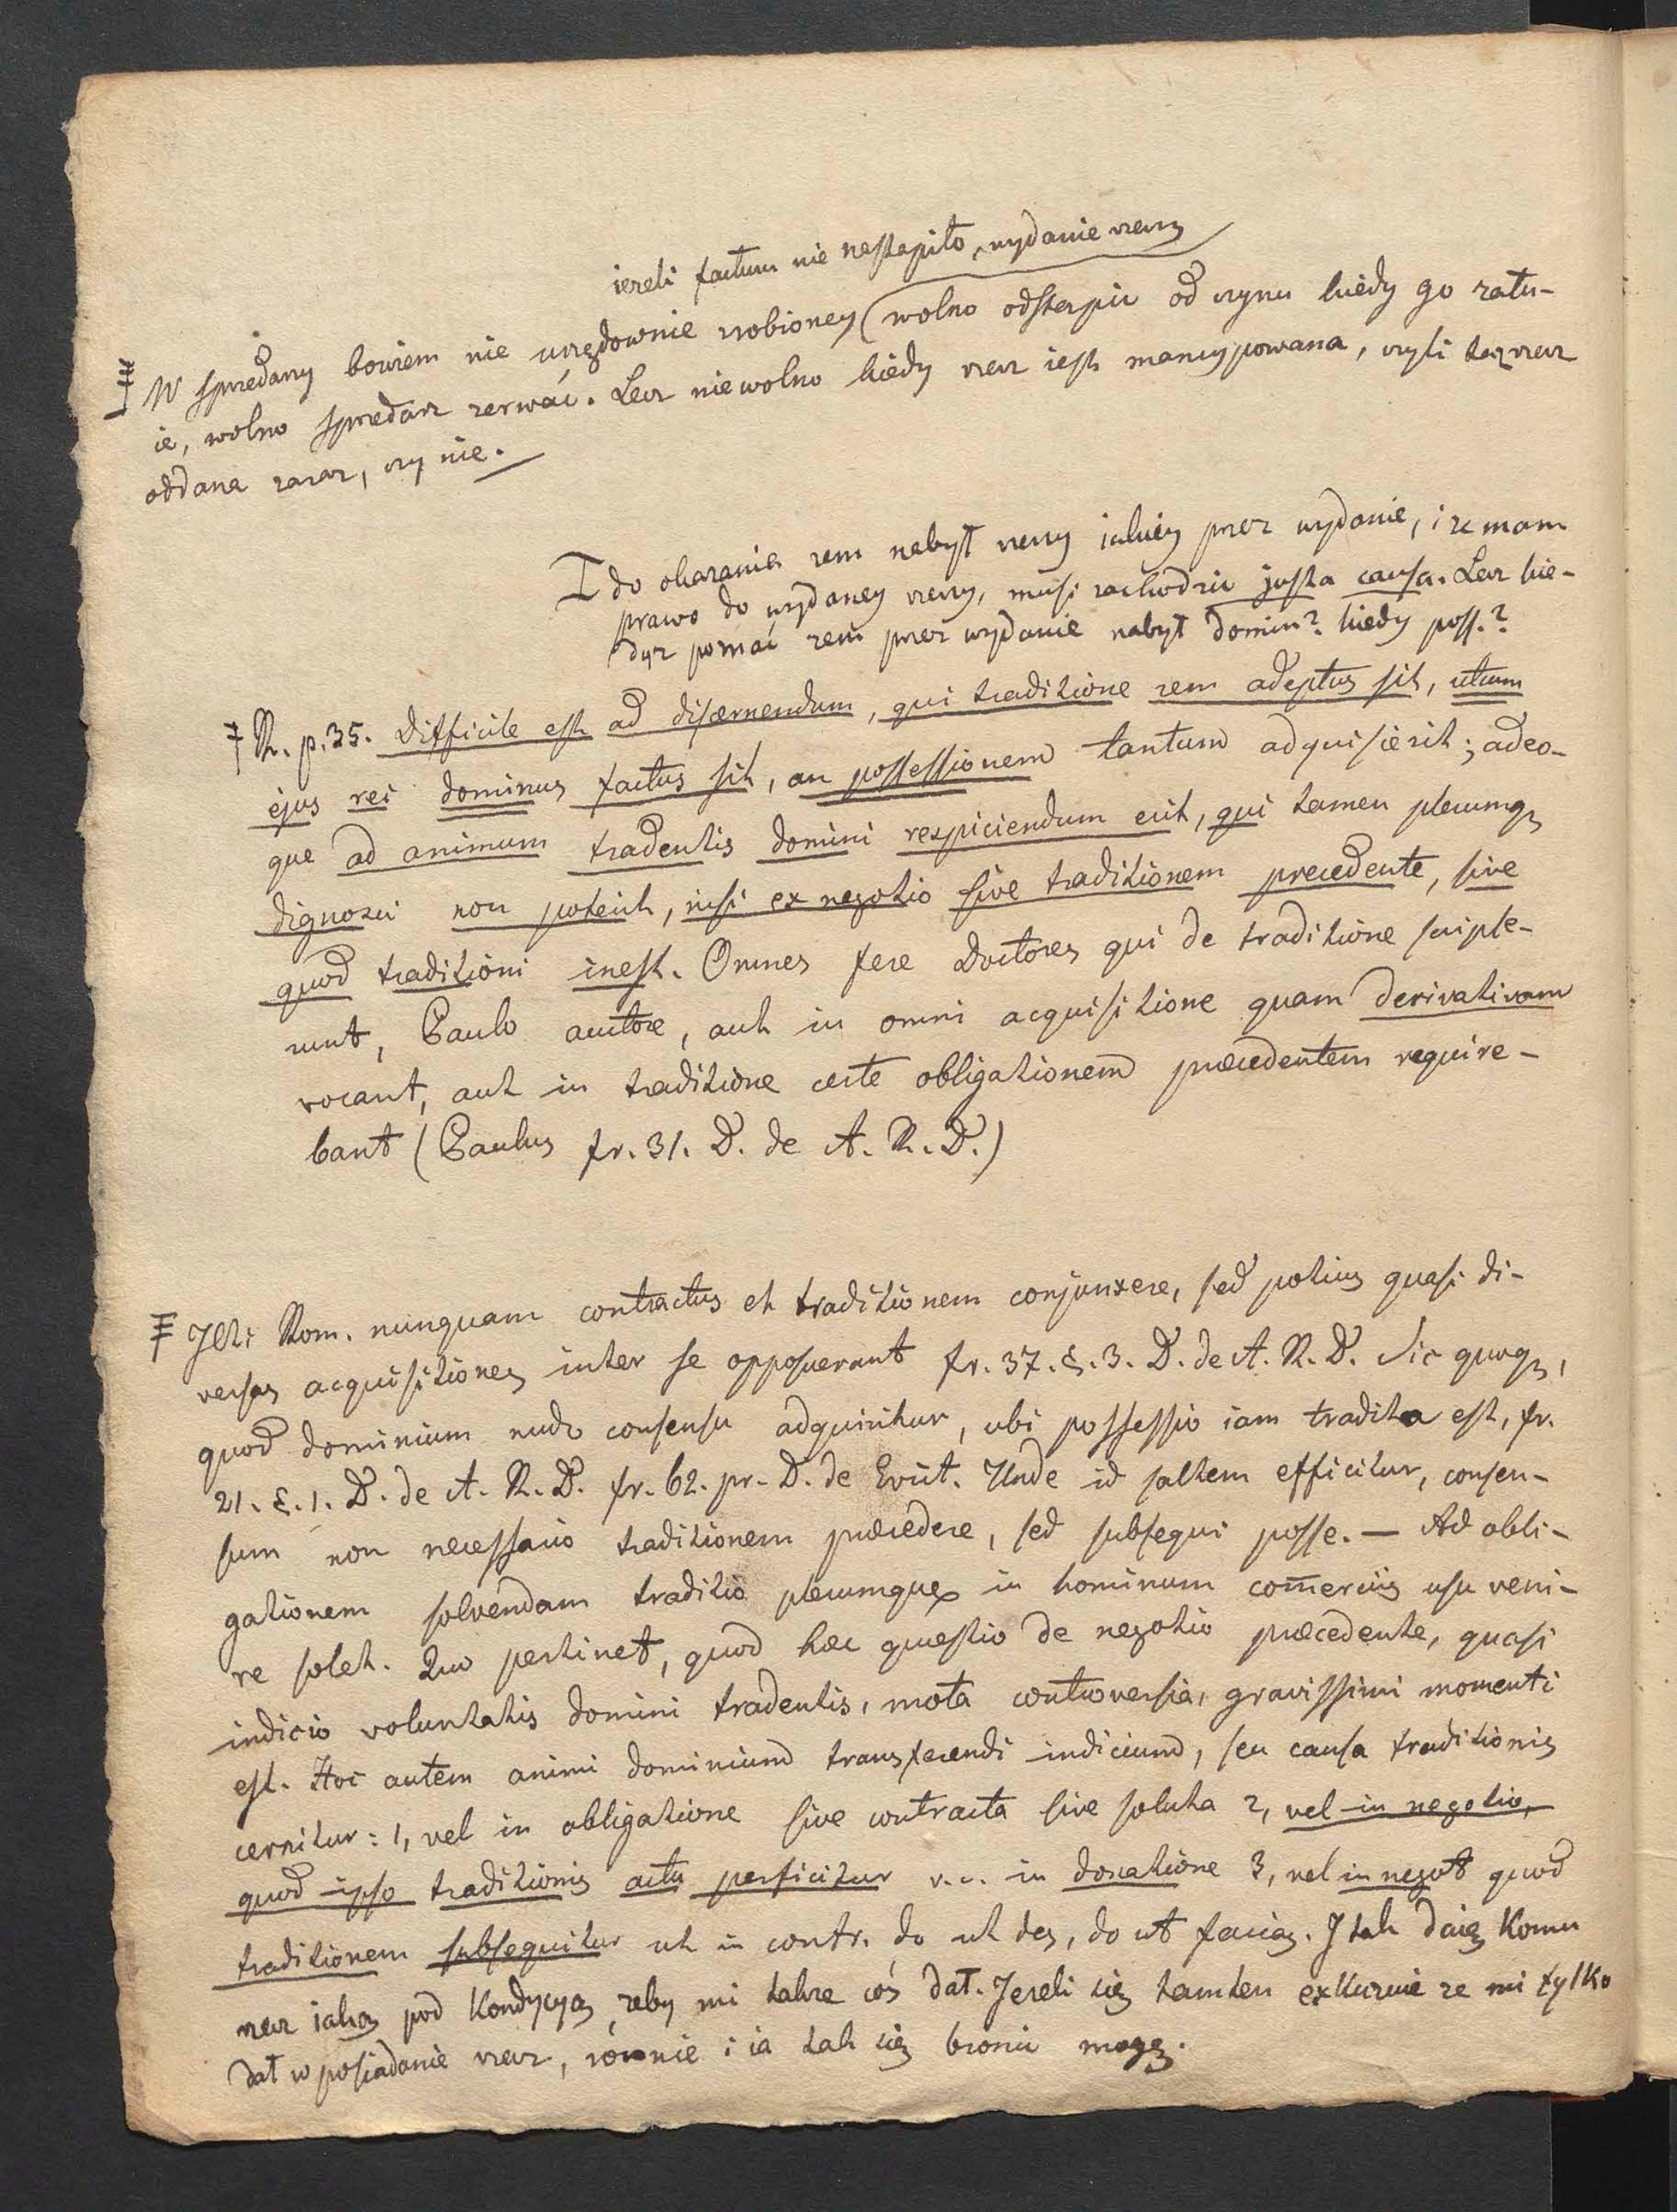 ieżeli factum nie nastąpiło, wydanie rzeczy
W sprzedaży bowiem nie urzędownie zrobioney wolno odstąpić od czynu kiedy go żału-
ie, wolno sprzedarz zerwać. Lecz niewolno kiedy rzecz iest mancypowana, czyli taż rzecz
oddana zaraz, czy nie.
I do okazania żem nabył rzeczy iakiey przez wydanie, i że mam
prawo do wydaney rzeczy, musi zachodzić justa causa. Lecz kie-
dyż poznać żem przez wydanie nabył domin? kiedy poss.?
R. p. 35. Difficile est ad discernendum, qui traditione rem adeptus sit, utrum
ejus rei dominus factus sit, an possessionem tantum adquisierit; adeo-
que ad animum tradentis domini respiciendum erit, qui tamen plerumq
dignosci non poterit, nisi ex negotio sive traditionem precedente, sive
quod traditioni inest. Omnes fere Doctores qui de traditione scripse-
runt, Paulo auctore, aut in omni acquisitione quam derivativam
vocant, aut in traditione certe obligationem praecedentem require-
bant (Paulus fr. 31. D. de A. R. D.)
JCti Rom. nunquam contractus et traditionem conjunxere, sed potius quasi di-
versas acquisitiones inter se opposuerunt fr. 37. §. 3. D. de A. R. D. Sic quoq,
quod dominium nudo consensu adquiritur, ubi possessio iam tradita est, fr.
21. §. 1. D. de A. R. D. fr. 62. pr. D. de Evict. Unde id saltem efficitur, consen-
sum non necessario traditionem praecedere, sed subsequi posse. — Ad obli-
gationem solvendam traditio plerumque in hominum com̅erciis usu veni-
re solet. Quo pertinet, quod haec quaestio de negotio praecedente, quasi
indicio voluntatis domini tradentis, mota controversia, gravissimi momenti
est. Hoc autem animi dominium transferendi indicium, seu causa traditionis
cernitur: 1, vel in obligatione sive contracta sive soluta 2, vel in negotio,
quod ipso traditionis actu perficitur v. c. in donatione 3, vel in negot quod
traditionem subsequitur ut in contr. do ut des, do ut facias. I tak daię komu
rzecz iaką pod kondycyą, żeby mi także coś dał. Jeżeli się tamten exkuzuie że mi tylko
dał w posiadanie rzecz, równie i ia tak się bronić mogę.